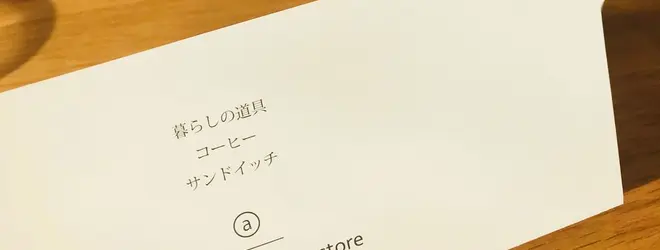 暮らしの道具
コーヒー
サンドイッチ
ⓐ
store